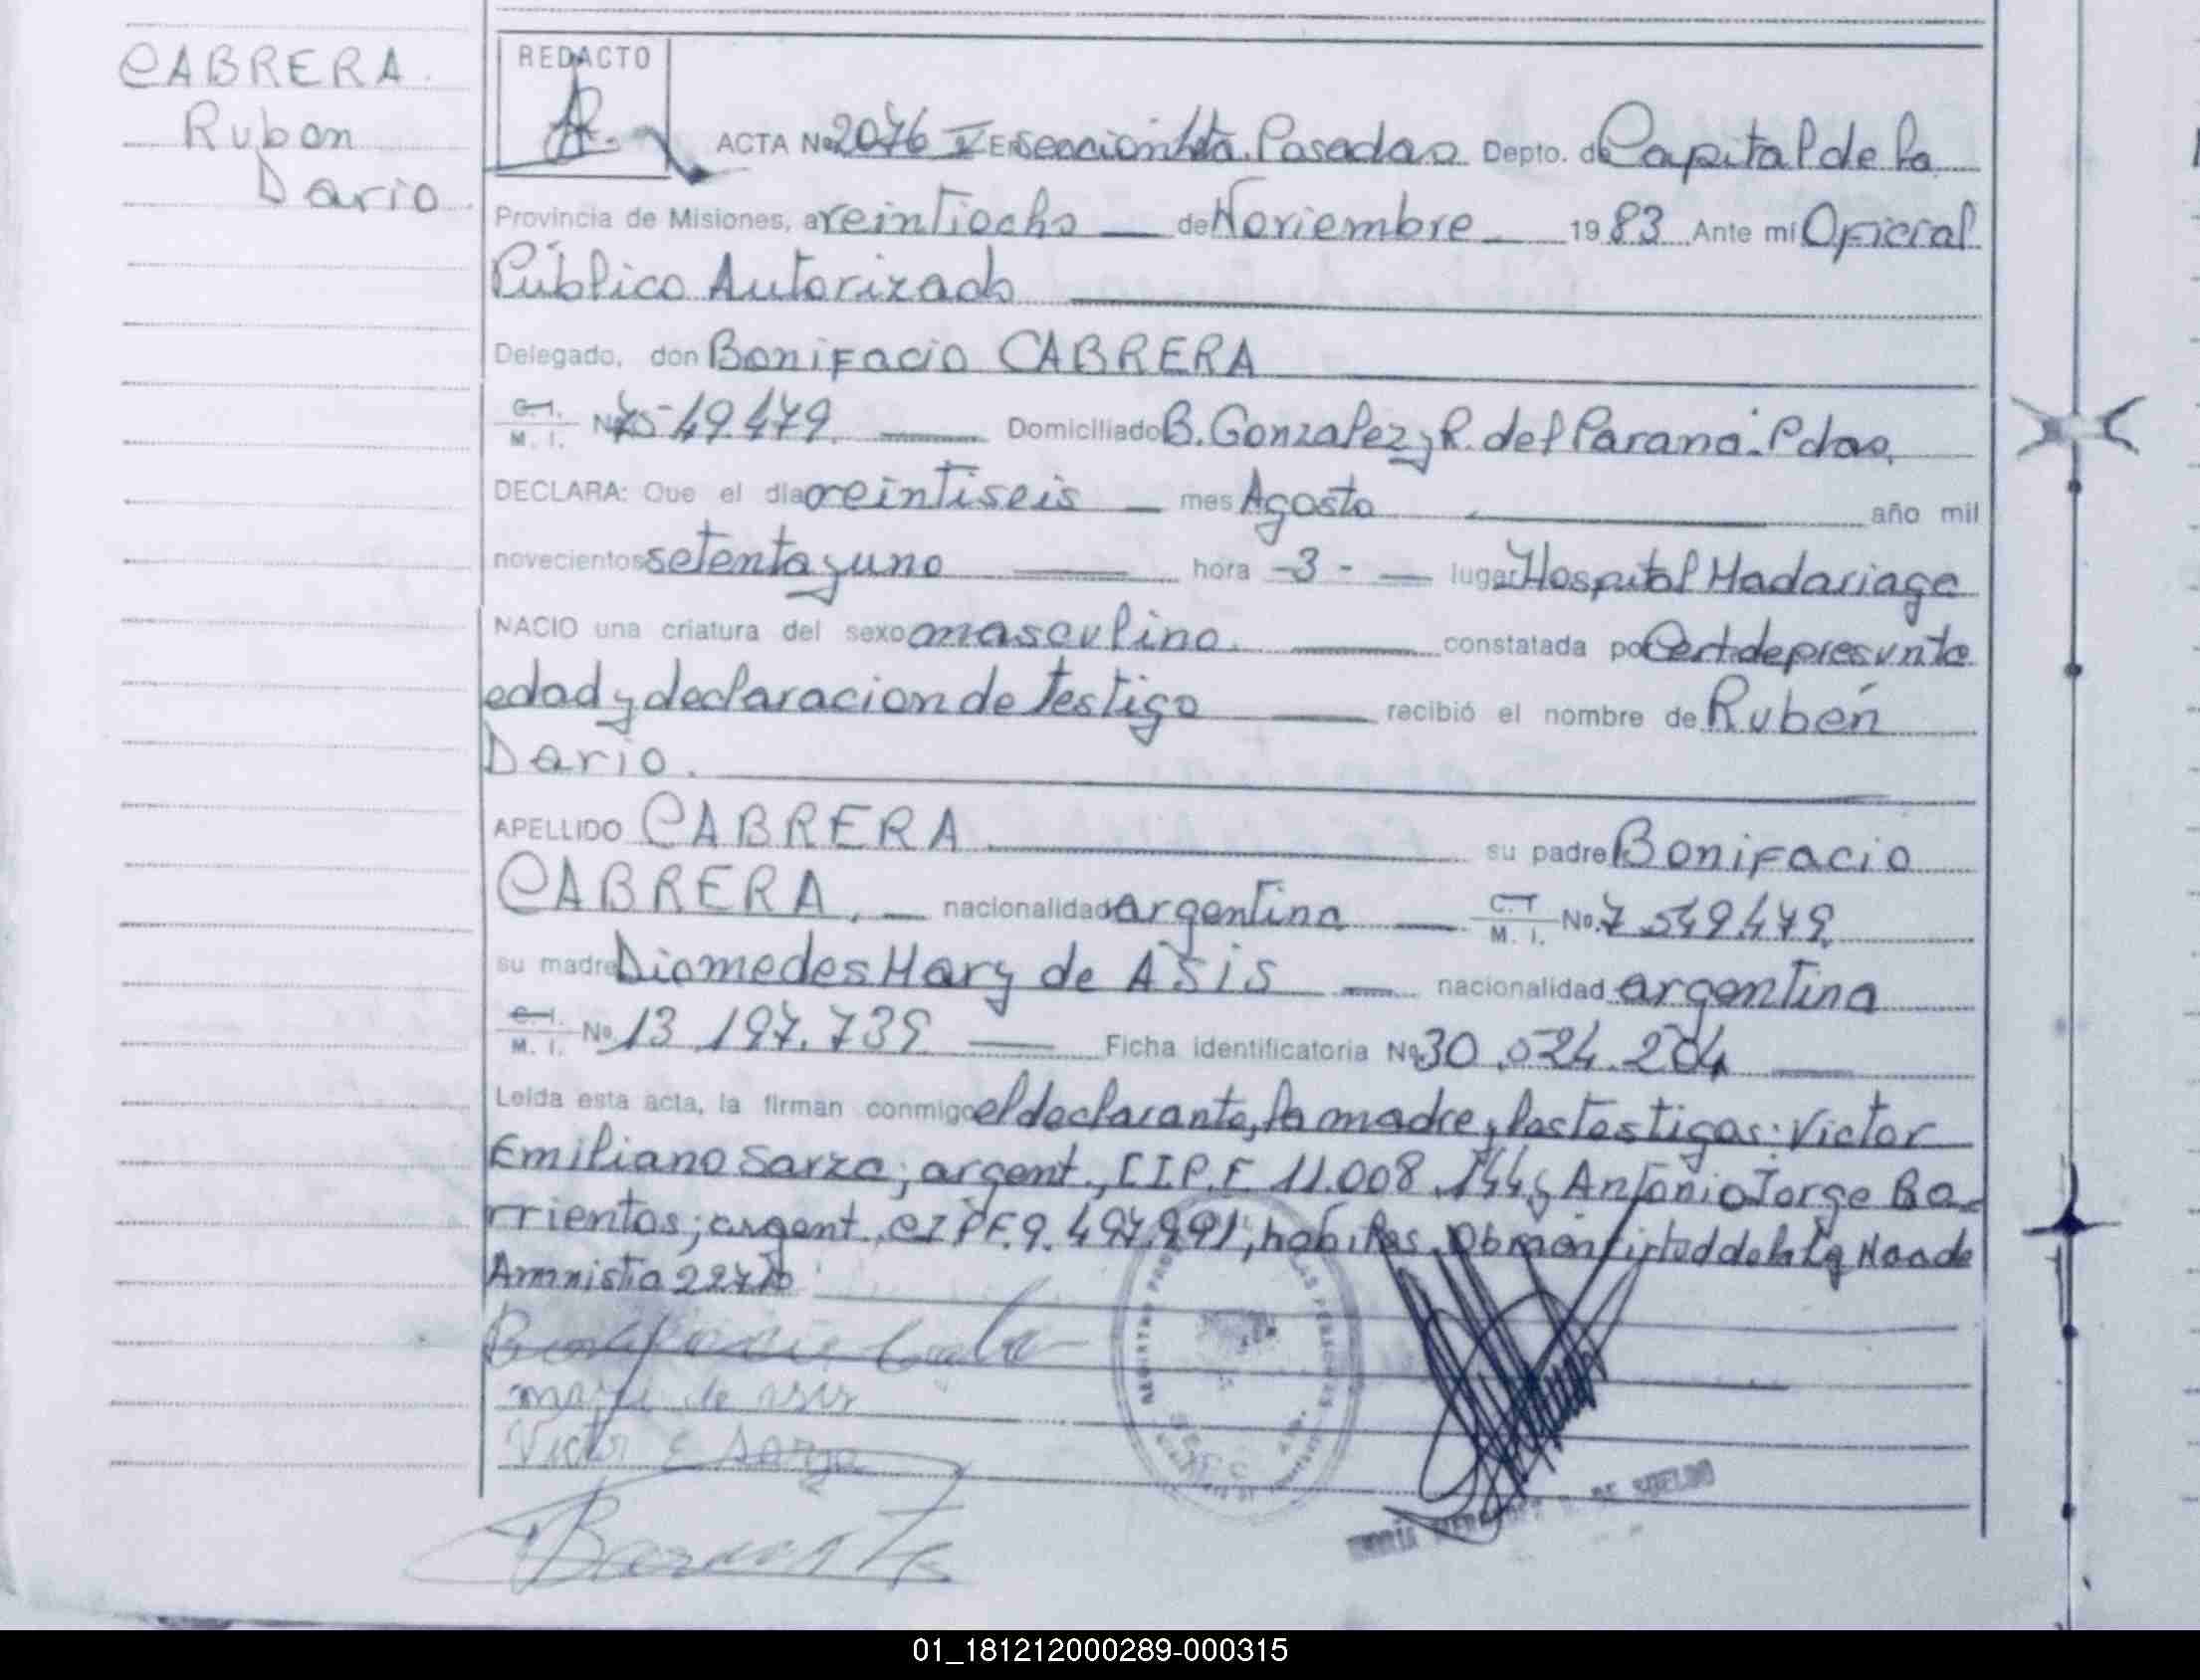 CABRERA.
Ruben
Dario
REDACTO
ACTA No 2076 V En sección 1ra. Posadas Depto. de Capital de la
Provincia de Misiones, a veintiocho de Noviembre 1983 Ante mí Oficial
Público Autorizado
Delegado, don Bonifacio CABRERA
C.I. M. I. No 7549.479. Domiciliado B. Gonzalez y R. del Paraná. Pdas.
DECLARA: Que el día veintiseis mes Agosto año mil
novecientos setenta y uno hora -3- lugar Hospital Madariaga
NACIO una criatura del sexo masculino. constatada por Cert. de presunta
edad y declaracion de testigo recibió el nombre de Rubén
Dario.
APELLIDO CABRERA su padre Bonifacio
CABRERA. nacionalidad argentina C.I. M. I. No. 7.549479.
su madre Diomedes Mary de ASIS nacionalidad argentina
C.I. M. I. No. 13.197.739 Ficha identificatoria No 30.024.204
Leída esta acta, la firman conmigo el declarante, la madre y los testigos: Victor
Emiliano Sarza; argent., C.I.P.F. 11.008.144 y Antonio Jorge Ba-
rrientos; argent. CIPF. 9.497.991; habiles. en virtud de la Ley de
Amnistia
mary de asis
Victor E Sarza
Barrientos
DE SUELDO
01_181212000289-000315